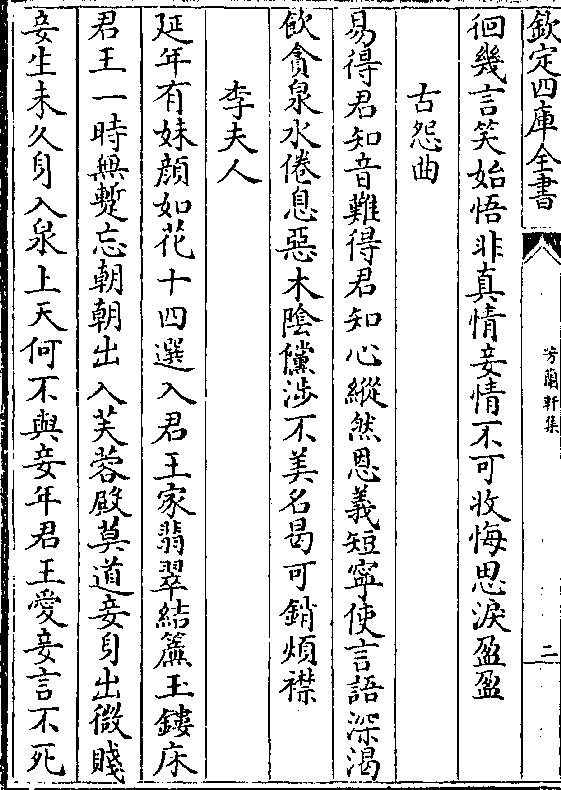 欽定四庫全書
芳蘭軒集
二
徊幾言笑始悟非真情妾情不可收悔思淚盈盈
古怨曲
易得君知音難得君知心縱然恩義短寧使言語深渴
飲貪泉水倦息惡木陰儻涉不美名曷可銷煩襟
李夫人
延年有妹顔如花十四選入君王家翡翠結簾玉鏤床
君王一時無蹔忘朝朝出入芙蓉殿莫道妾身出微賤
妾生未久身入泉上天何不與妾年君王愛妾言不死